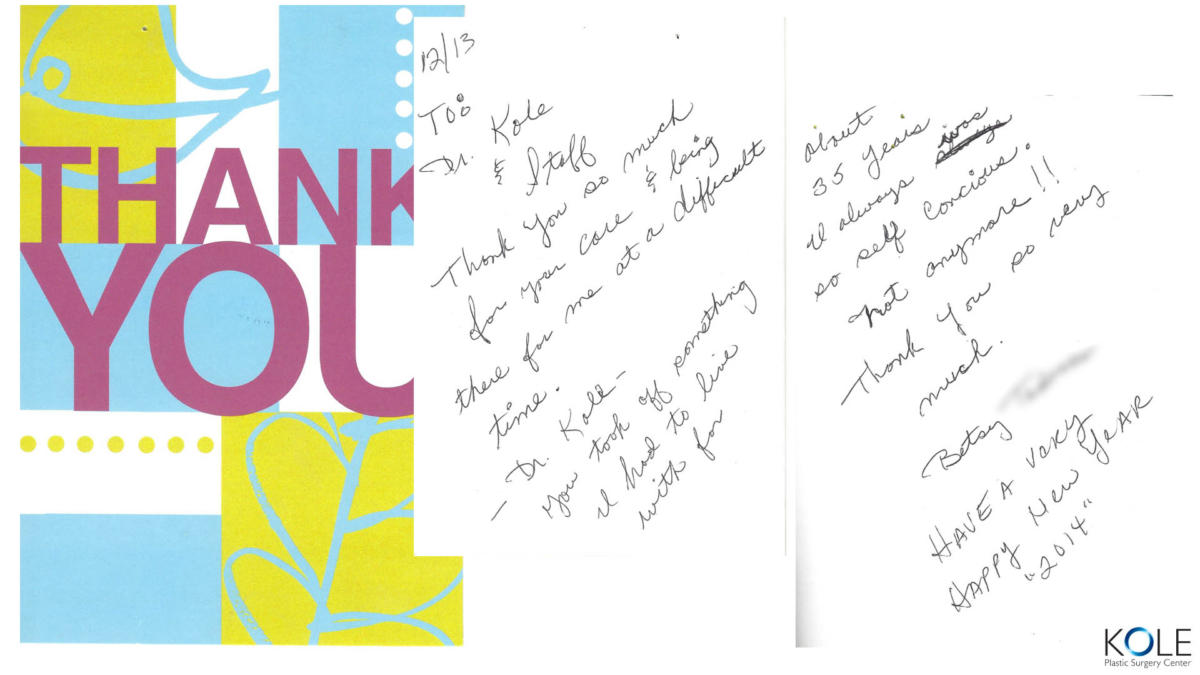 THANK
YOU
12/13
Too
Dr. Kole
& Staff
Thank You so much
for your care & being
there for me at a difficult
time.
- Dr. Kole -
You took off something
I had to live
with for
about
35 years
I always was
so self concious.
not anymore!!
Thank You so very
much.
Betsy
HAVE A VERY
HAPPY NEW YEAR
"2014"
KOLE
Plastic Surgery Center